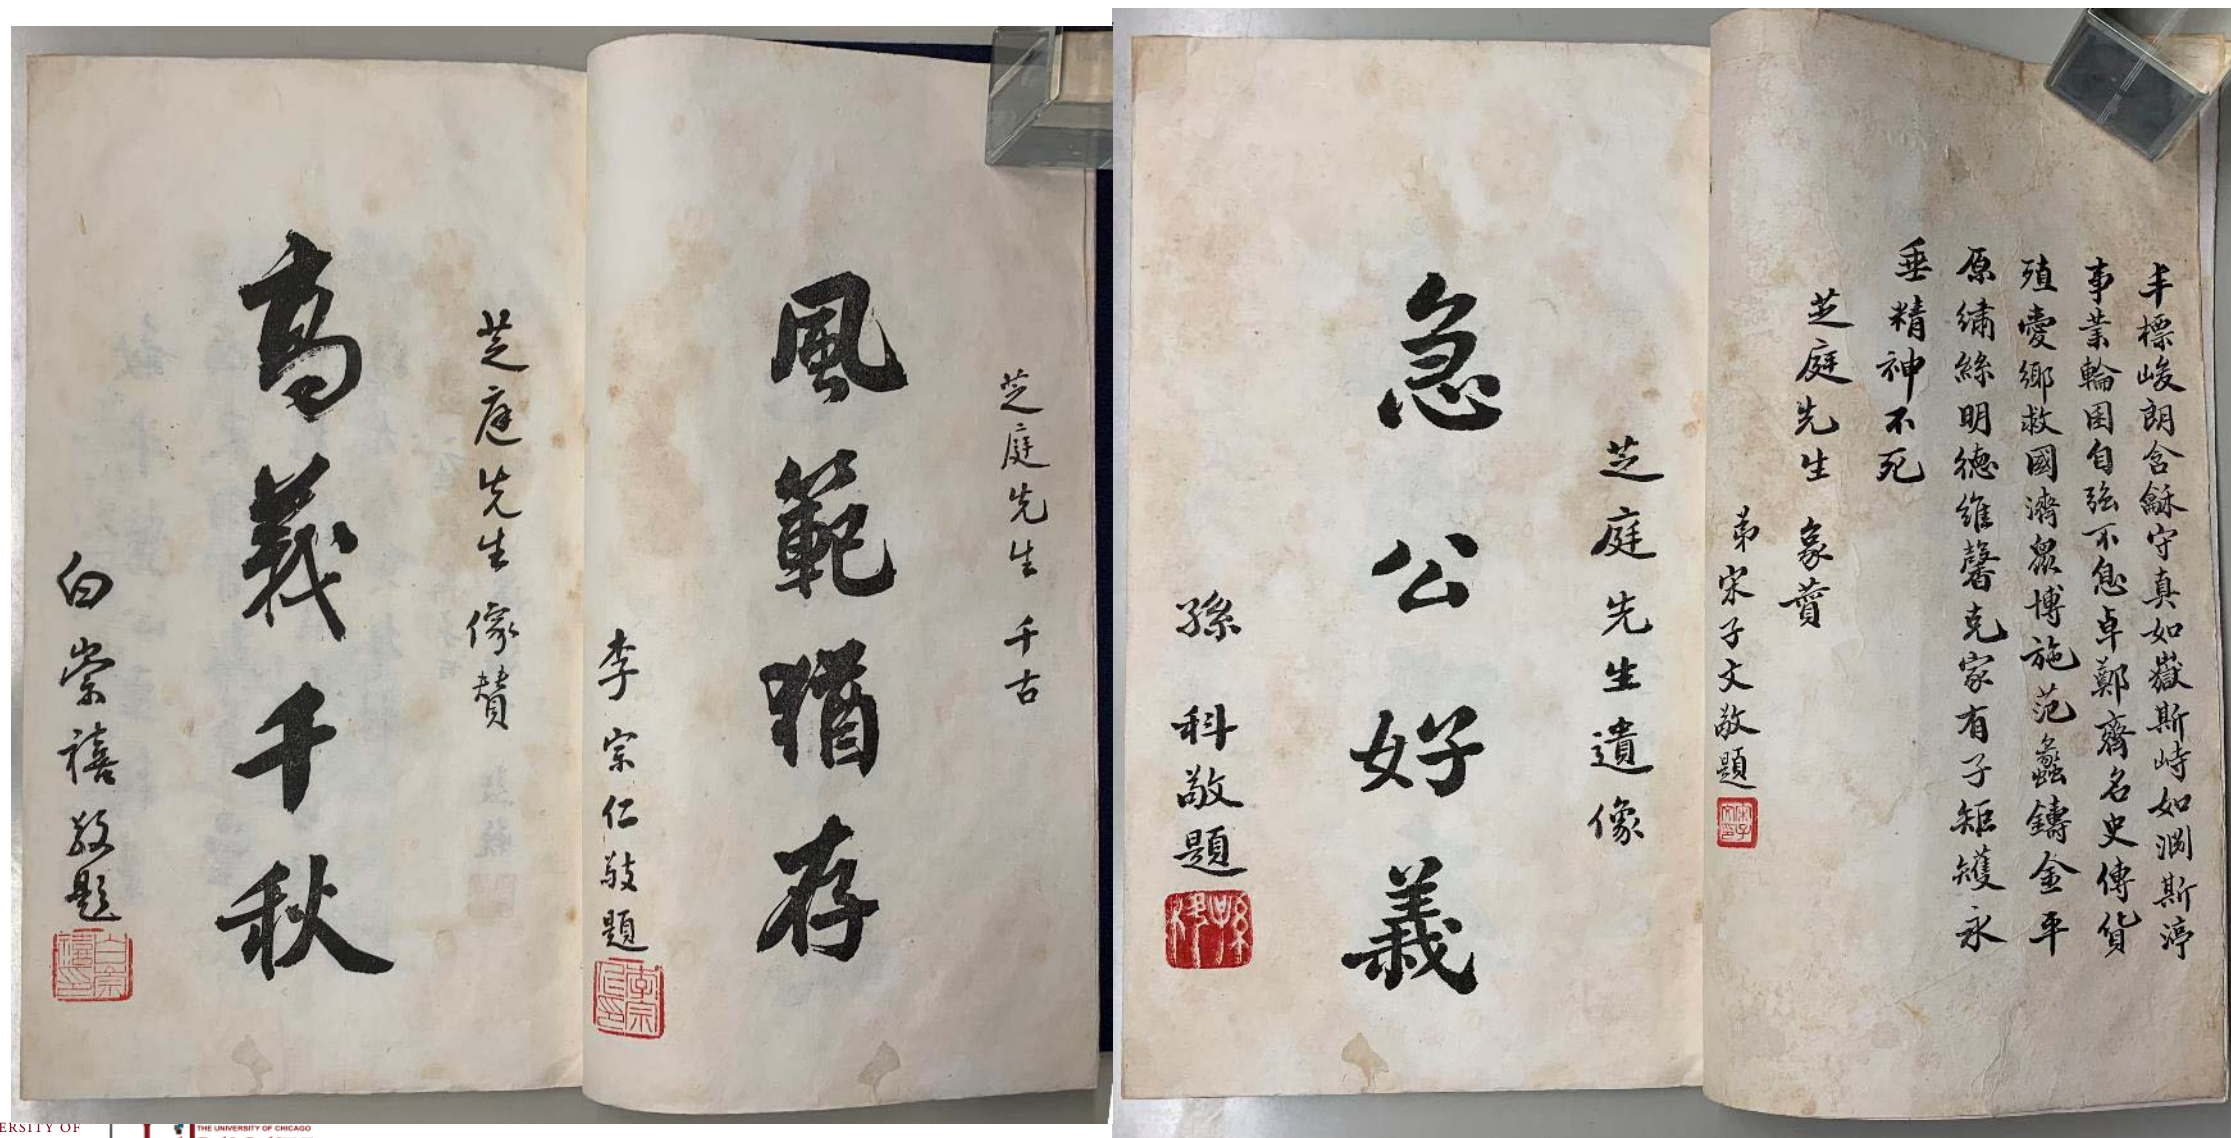 丰標峻朗含龢守真如嶽斯峙如淵斯渟
事業輪囷自強不息卓鄭齊名史傳貨
殖愛鄉救國濟眾博施范蠡鑄金平
原繡絲明德維馨克家有子矩矱永
垂精神不死
芝庭先生 象贊
弟宋子文敬題
芝庭先生遺像
急公好義
孫科敬題
芝庭先生千古
風範猶存
李宗仁敬題
李宗仁印
芝庭先生像贊
高義千秋
白崇禧敬題
白崇禧印
ERSITY OF
THE UNIVERSITY OF CHICAGO